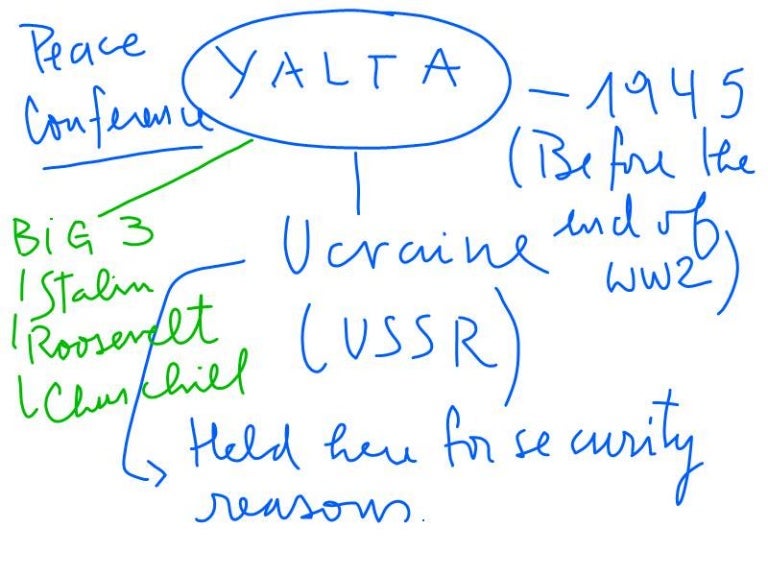 Peace
Conference
YALTA
- 1945
(Before the
end of
WW2)
BiG 3
Stalin
Roosevelt
Churchill
Ucraine
(USSR)
Held here for security
reasons.